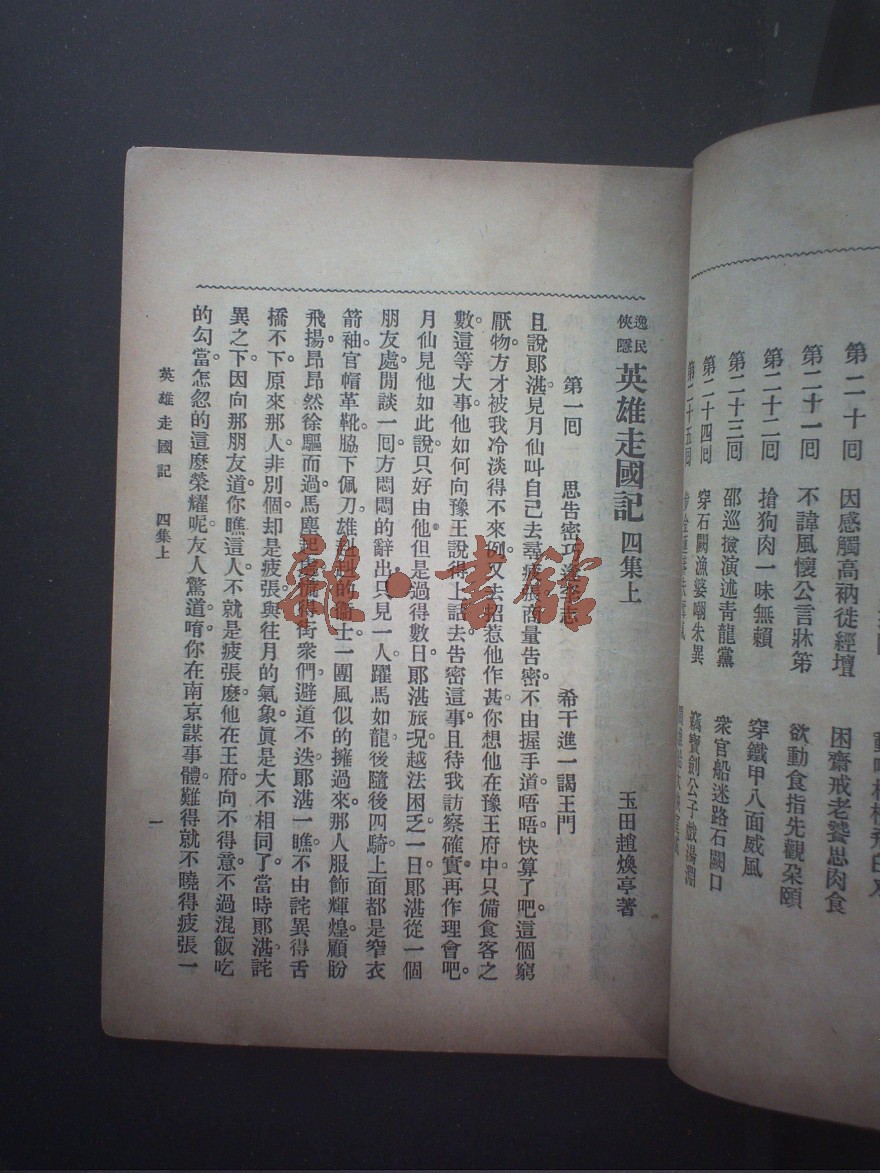 第二十回　因感觸高衲徙經壇　困齋戒老饕思肉食
第二十一回　不諱風懷公言牀笫　欲動食指先觀朶頤
第二十二回　搶狗肉一味無賴　穿鐵甲八面威風
第二十三回　邵巡檢演述青龍黨　衆官船迷路石闕口
第二十四回　穿石闕漁婆嘲朱異　竊寶劍公子戲湯淵
第二十五回
逸民
俠隱　英雄走國記　四集上
玉田趙煥亭著
第一回　思告密巧逢李志　希干進一謁王門
且說鄖湛見月仙叫自己去尋疲張商量告密不由握手道唔唔快算了吧。這個窮
厭物方才被我冷淡得不來例。又去招惹他作甚你想他在豫王府中只備食客之
數。這等大事他如何向豫王說得上話去告密這事且待我訪察確實。再作理會吧。
月仙見他如此說。只好由他。但是過得數日鄖湛旅况越法困乏一日鄖湛從一個
朋友處。閒談一回。方悶悶的辭出。只見一人躍馬如龍。後隨後四騎。上面都是窄衣
箭袖。官帽革靴。脇下佩刀。雄赳赳的衛士。一團風似的擁過來。那人服飾輝煌。顧盼
飛揚。昂昂然徐驅而過。馬塵起處。慌得街衆們。避道不迭。鄖湛一瞧。不由詫異得舌
撟不下。原來那人。非別個。却是疲張。與往月的氣象。眞是大不相同了。當時鄖湛。詫
異之下。因向那朋友道。你瞧這人。不就是疲張麽。他在王府。向不得意。不過混飯吃
的勾當。怎忽的這麽榮耀呢。友人驚道。唷你在南京謀事。體難得就不曉得疲張一
英雄走國記　四集上
一
雜·書館